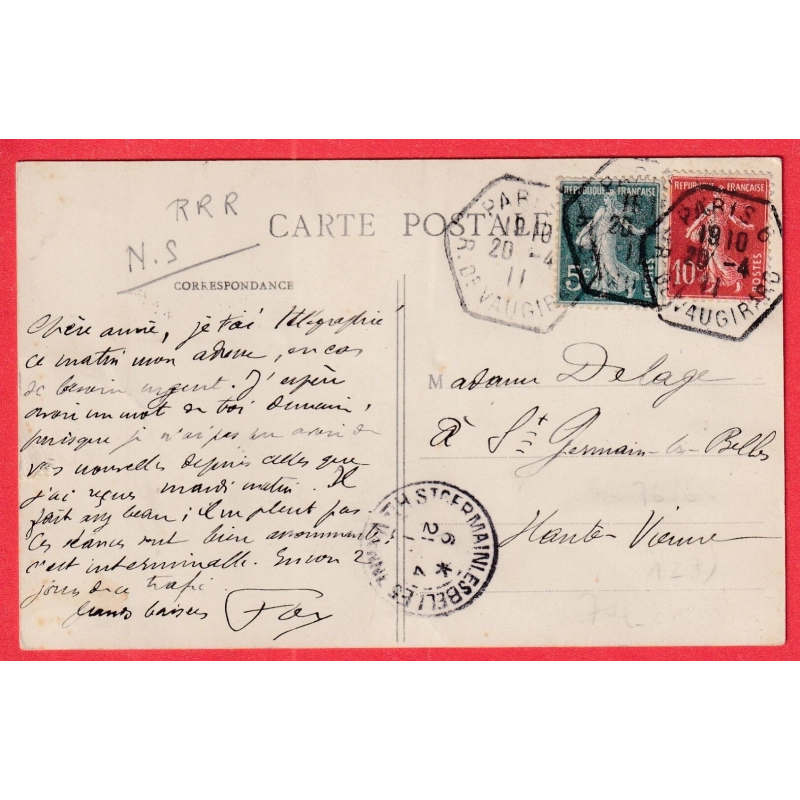 RRR
N.S
CARTE POSTALE
CORRESPONDANCE
Chère amie, je t'ai télégraphié
ce matin mon adresse, en cas
de besoin urgent. J'espère
avoir un mot de toi demain,
puisque je n'ai pas eu
vos nouvelles depuis celles que
j'ai reçues mardi matin. Il
fait assez beau; il ne pleut pas.
Ces séances sont bien assommantes
c'est interminable. Encore 2
jours de ce trafic
Grands baisers
REPUBLIQUE FRANÇAISE
5c
REPUBLIQUE FRANÇAISE
10c
POSTES
PARIS 6
19 10
20 -4
11
R. DE VAUGIRARD
PARIS 6
19 10
20 -4
11
R. DE VAUGIRARD
Madame Delage
à St Germain-les-Belles
Haute Vienne
ST GERMAIN LES BELLES
6 *
21 4